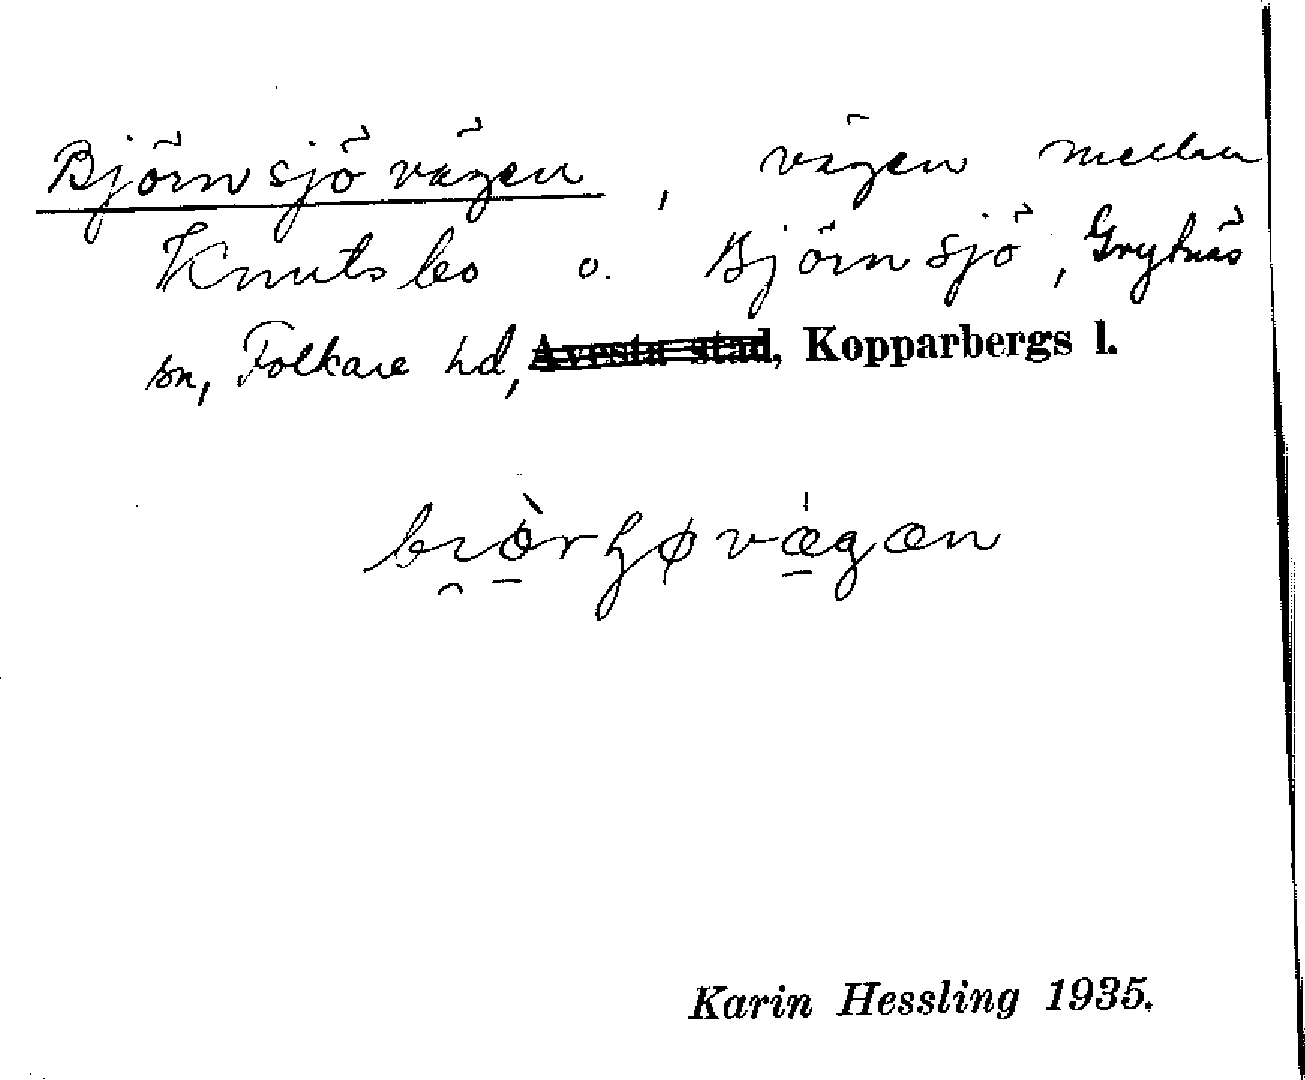 Björnsjövägen, vägen mellan
Knutsbo o. Björnsjö, Grytnäs
sn, Folkare hd, Avesta stad, Kopparbergs l.
Karin Hessling 1935.